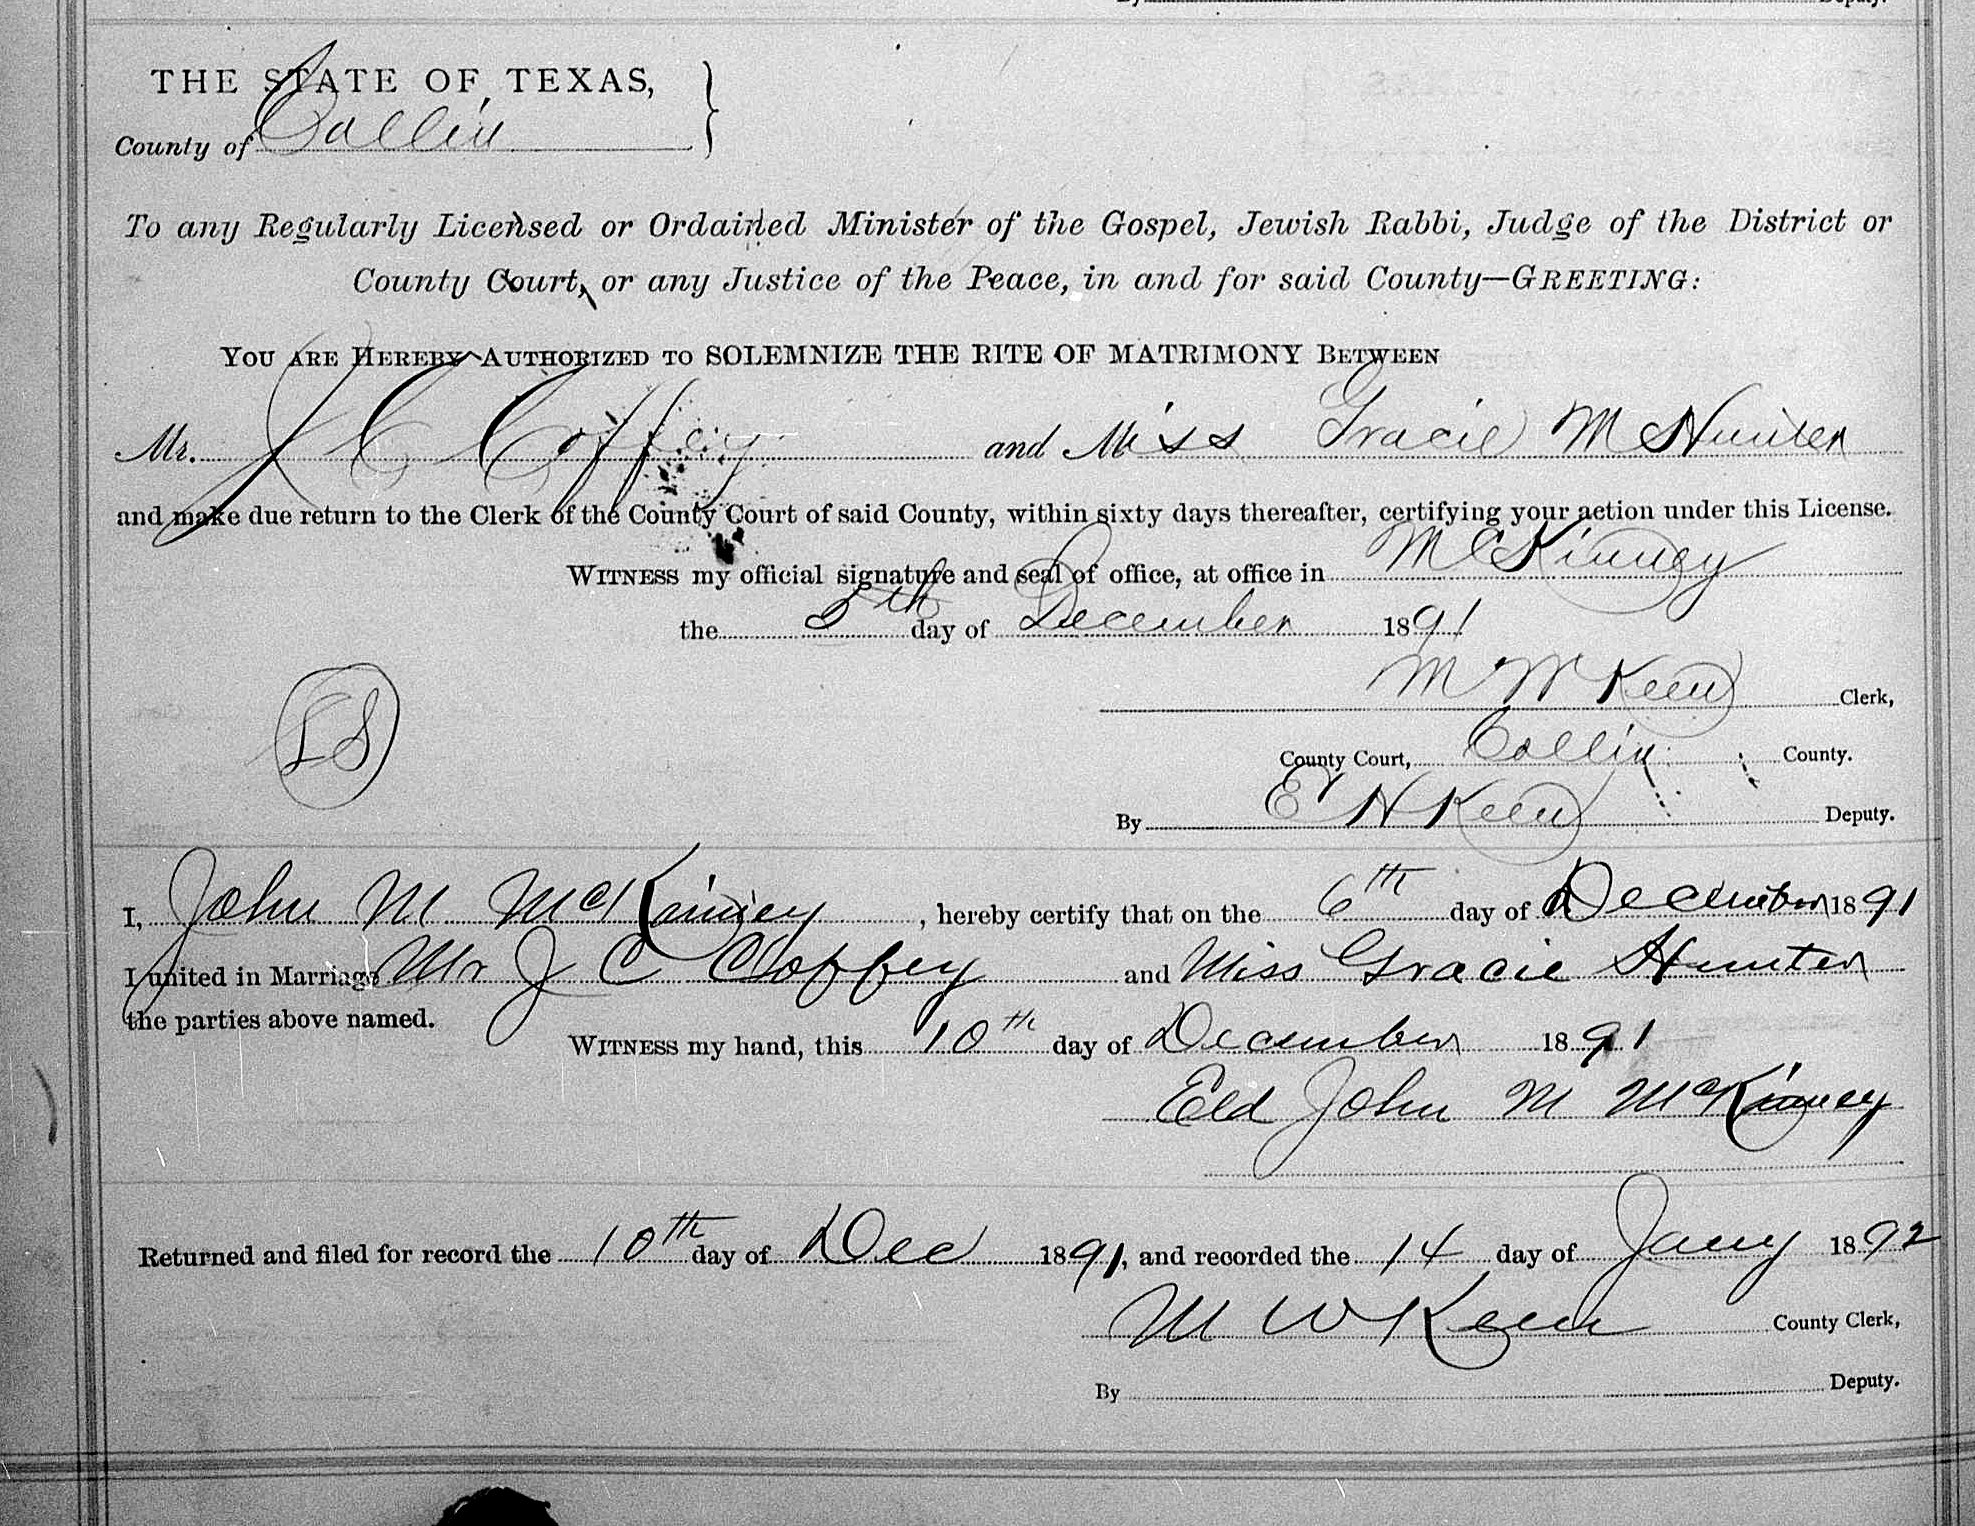 Deputy.
THE STATE OF TEXAS,
County of Collin
To any Regularly Licensed or Ordained Minister of the Gospel, Jewish Rabbi, Judge of the District or
County Court, or any Justice of the Peace, in and for said County—GREETING:
YOU ARE HEREBY AUTHORIZED TO SOLEMNIZE THE RITE OF MATRIMONY BETWEEN
Mr. J C Coffey and Miss Gracie M Hunter
and make due return to the Clerk of the County Court of said County, within sixty days thereafter, certifying your action under this License.
WITNESS my official signature and seal of office, at office in McKinney
the 5th day of December 1891
M W Keen Clerk,
LS
County Court, Collin County.
By E H Keen Deputy.
I, John M McKinney, hereby certify that on the 6th day of December 1891
I united in Marriage Mr J C Coffey and Miss Gracie Hunter
the parties above named.
WITNESS my hand, this 10th day of December 1891
Eld John M McKinney
Returned and filed for record the 10th day of Dec 1891, and recorded the 14 day of Jany 1892
M W Keen County Clerk,
By Deputy.